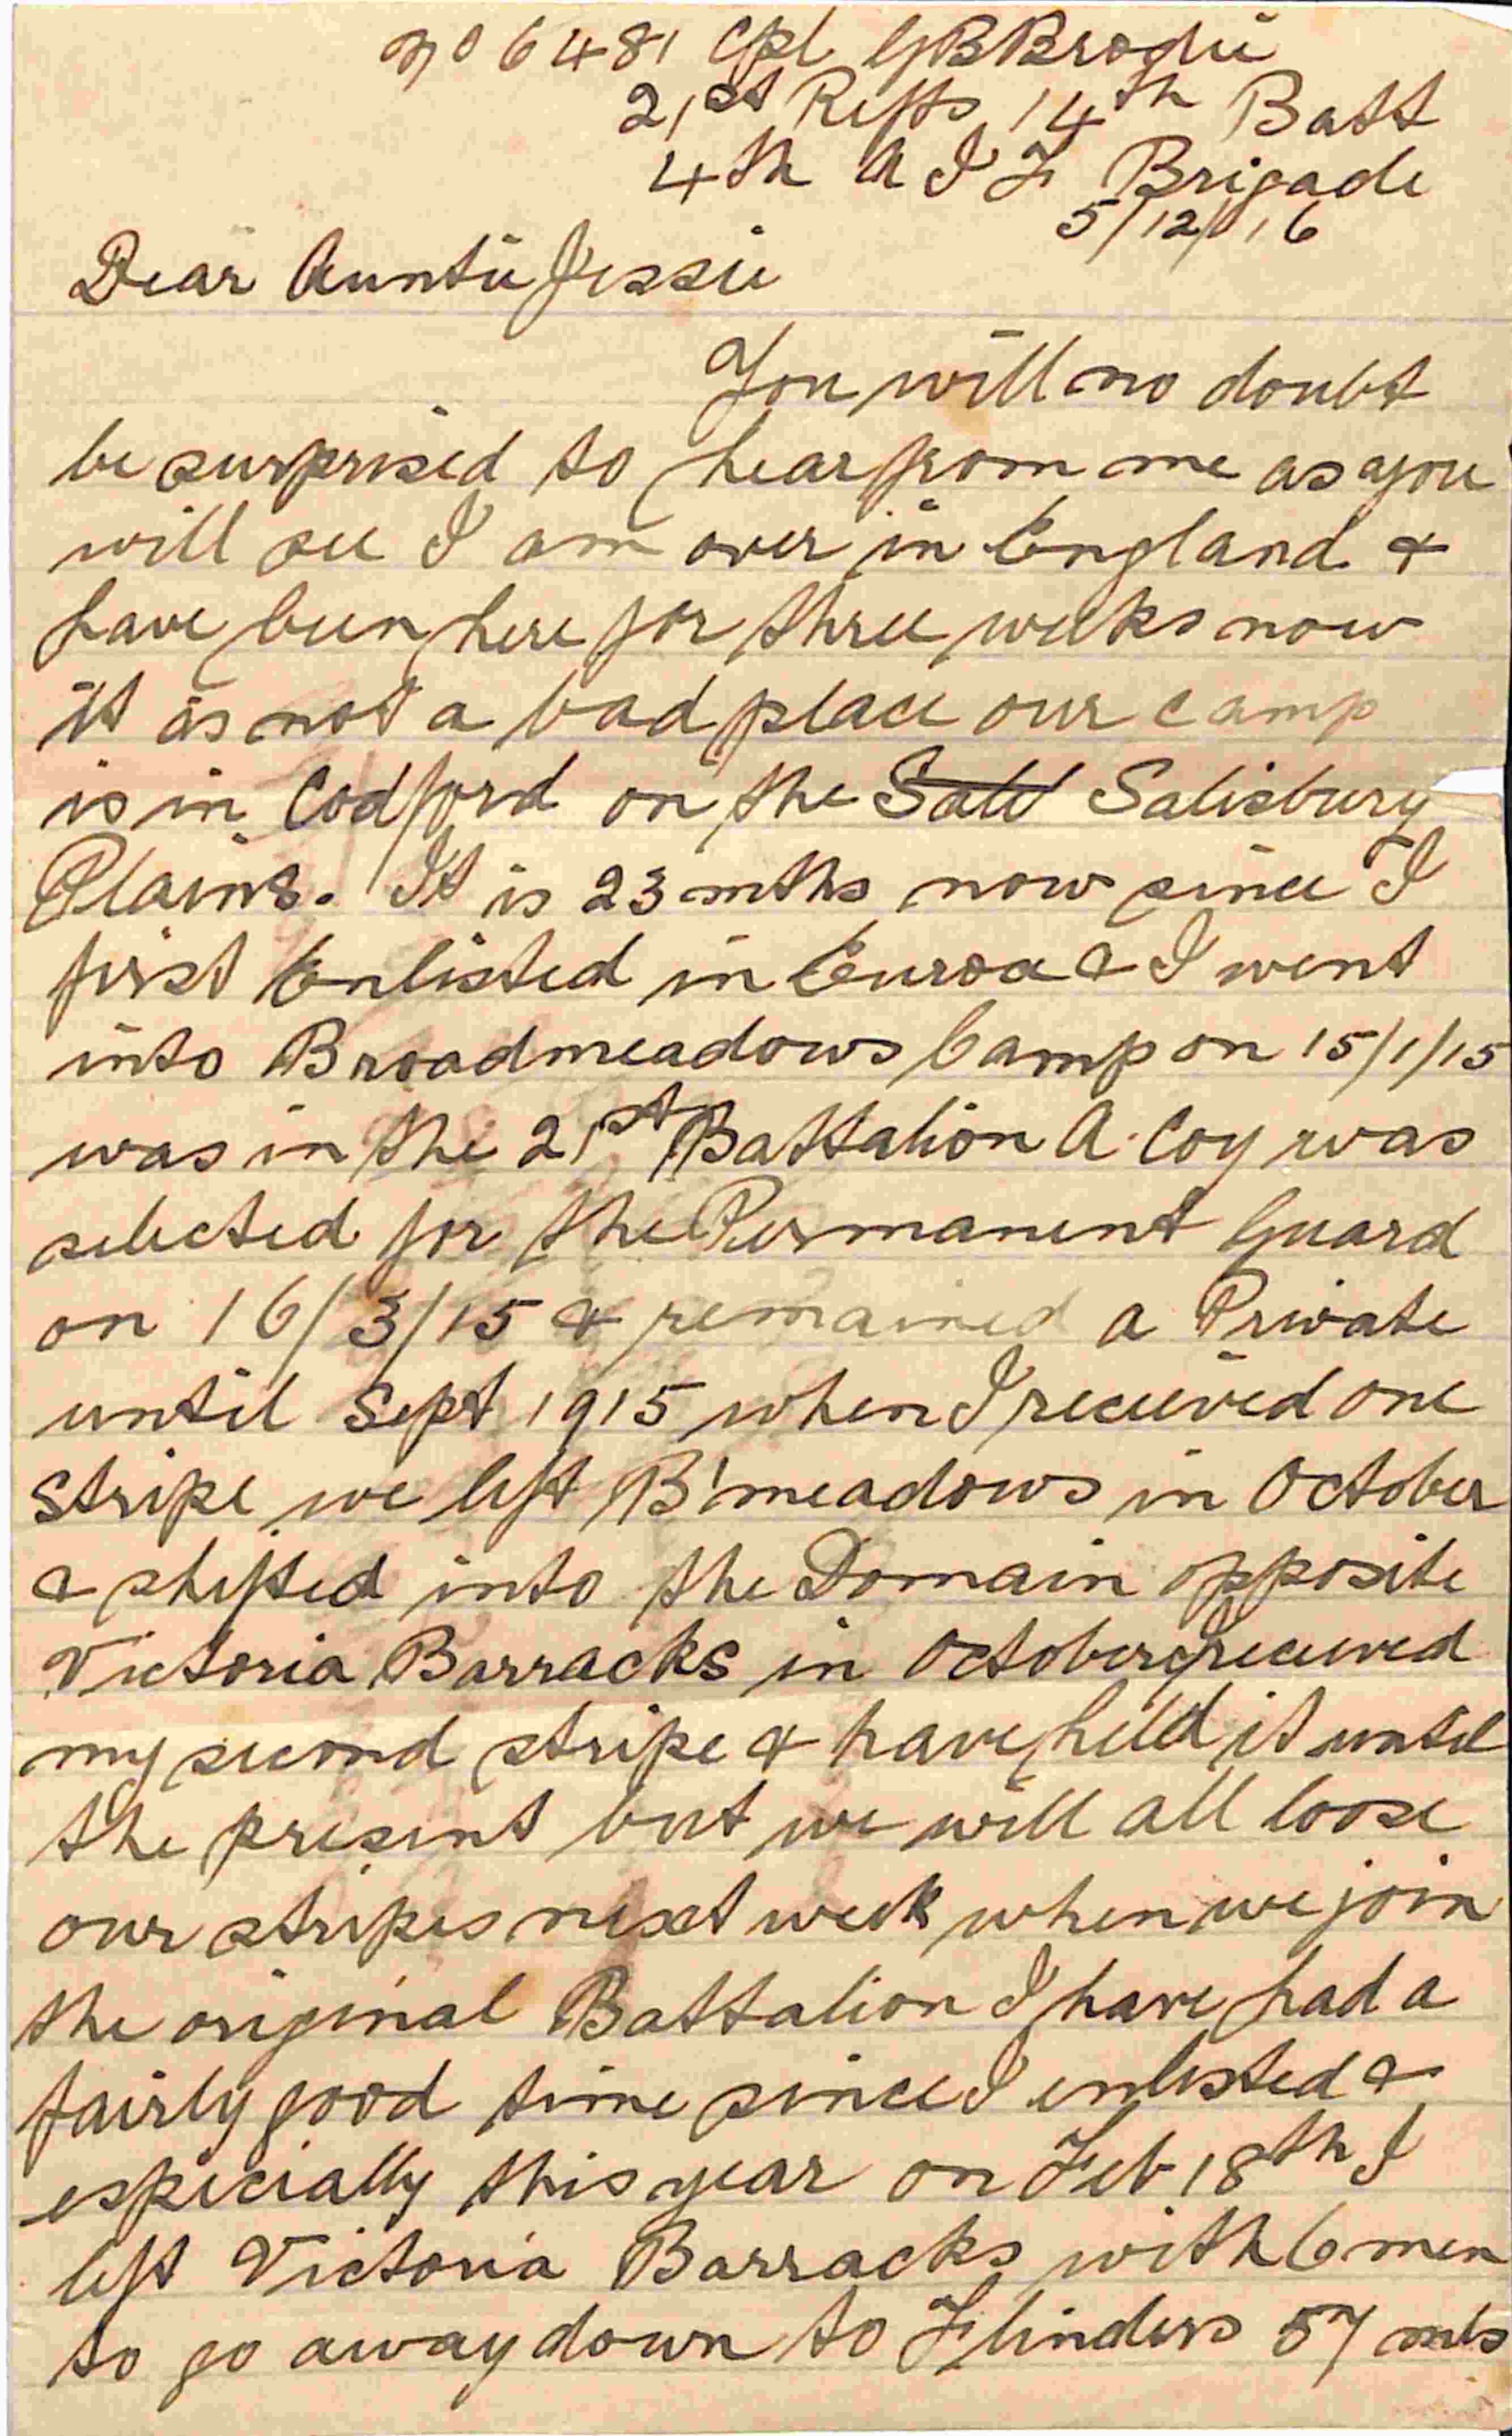 No 6481 Cpl G B Brodie
21st Refts 14th Batt
4th A I F Brigade
5/12/16
Dear Auntie Jessie
You will no doubt
be surprised to hear from me as you
will see I am over in England &
have been here for three weeks now
it is not a bad place our camp
is in Codford on the Sall Salisbury
Plains. It is 23 mths now since I
first Enlisted in Euroa & I went
into Broadmeadows Camp on 15/1/15
was in the 21st Battalion A. Coy was
selected for the Permanent Guard
on 16/3/15 & remained a Private
until Sept 1915 when I received one
stripe we left B'meadows in October
& shifted into the Domain opposite
Victoria Barracks in October I received
my second stripe & have held it until
the present but we will all loose
our stripes next week when we join
the original Battalion I have had a
fairly good time since I enlisted &
especially this year on Feb 18th I
left Victoria Barracks with 6 men
to go away down to Flinders 57 mls